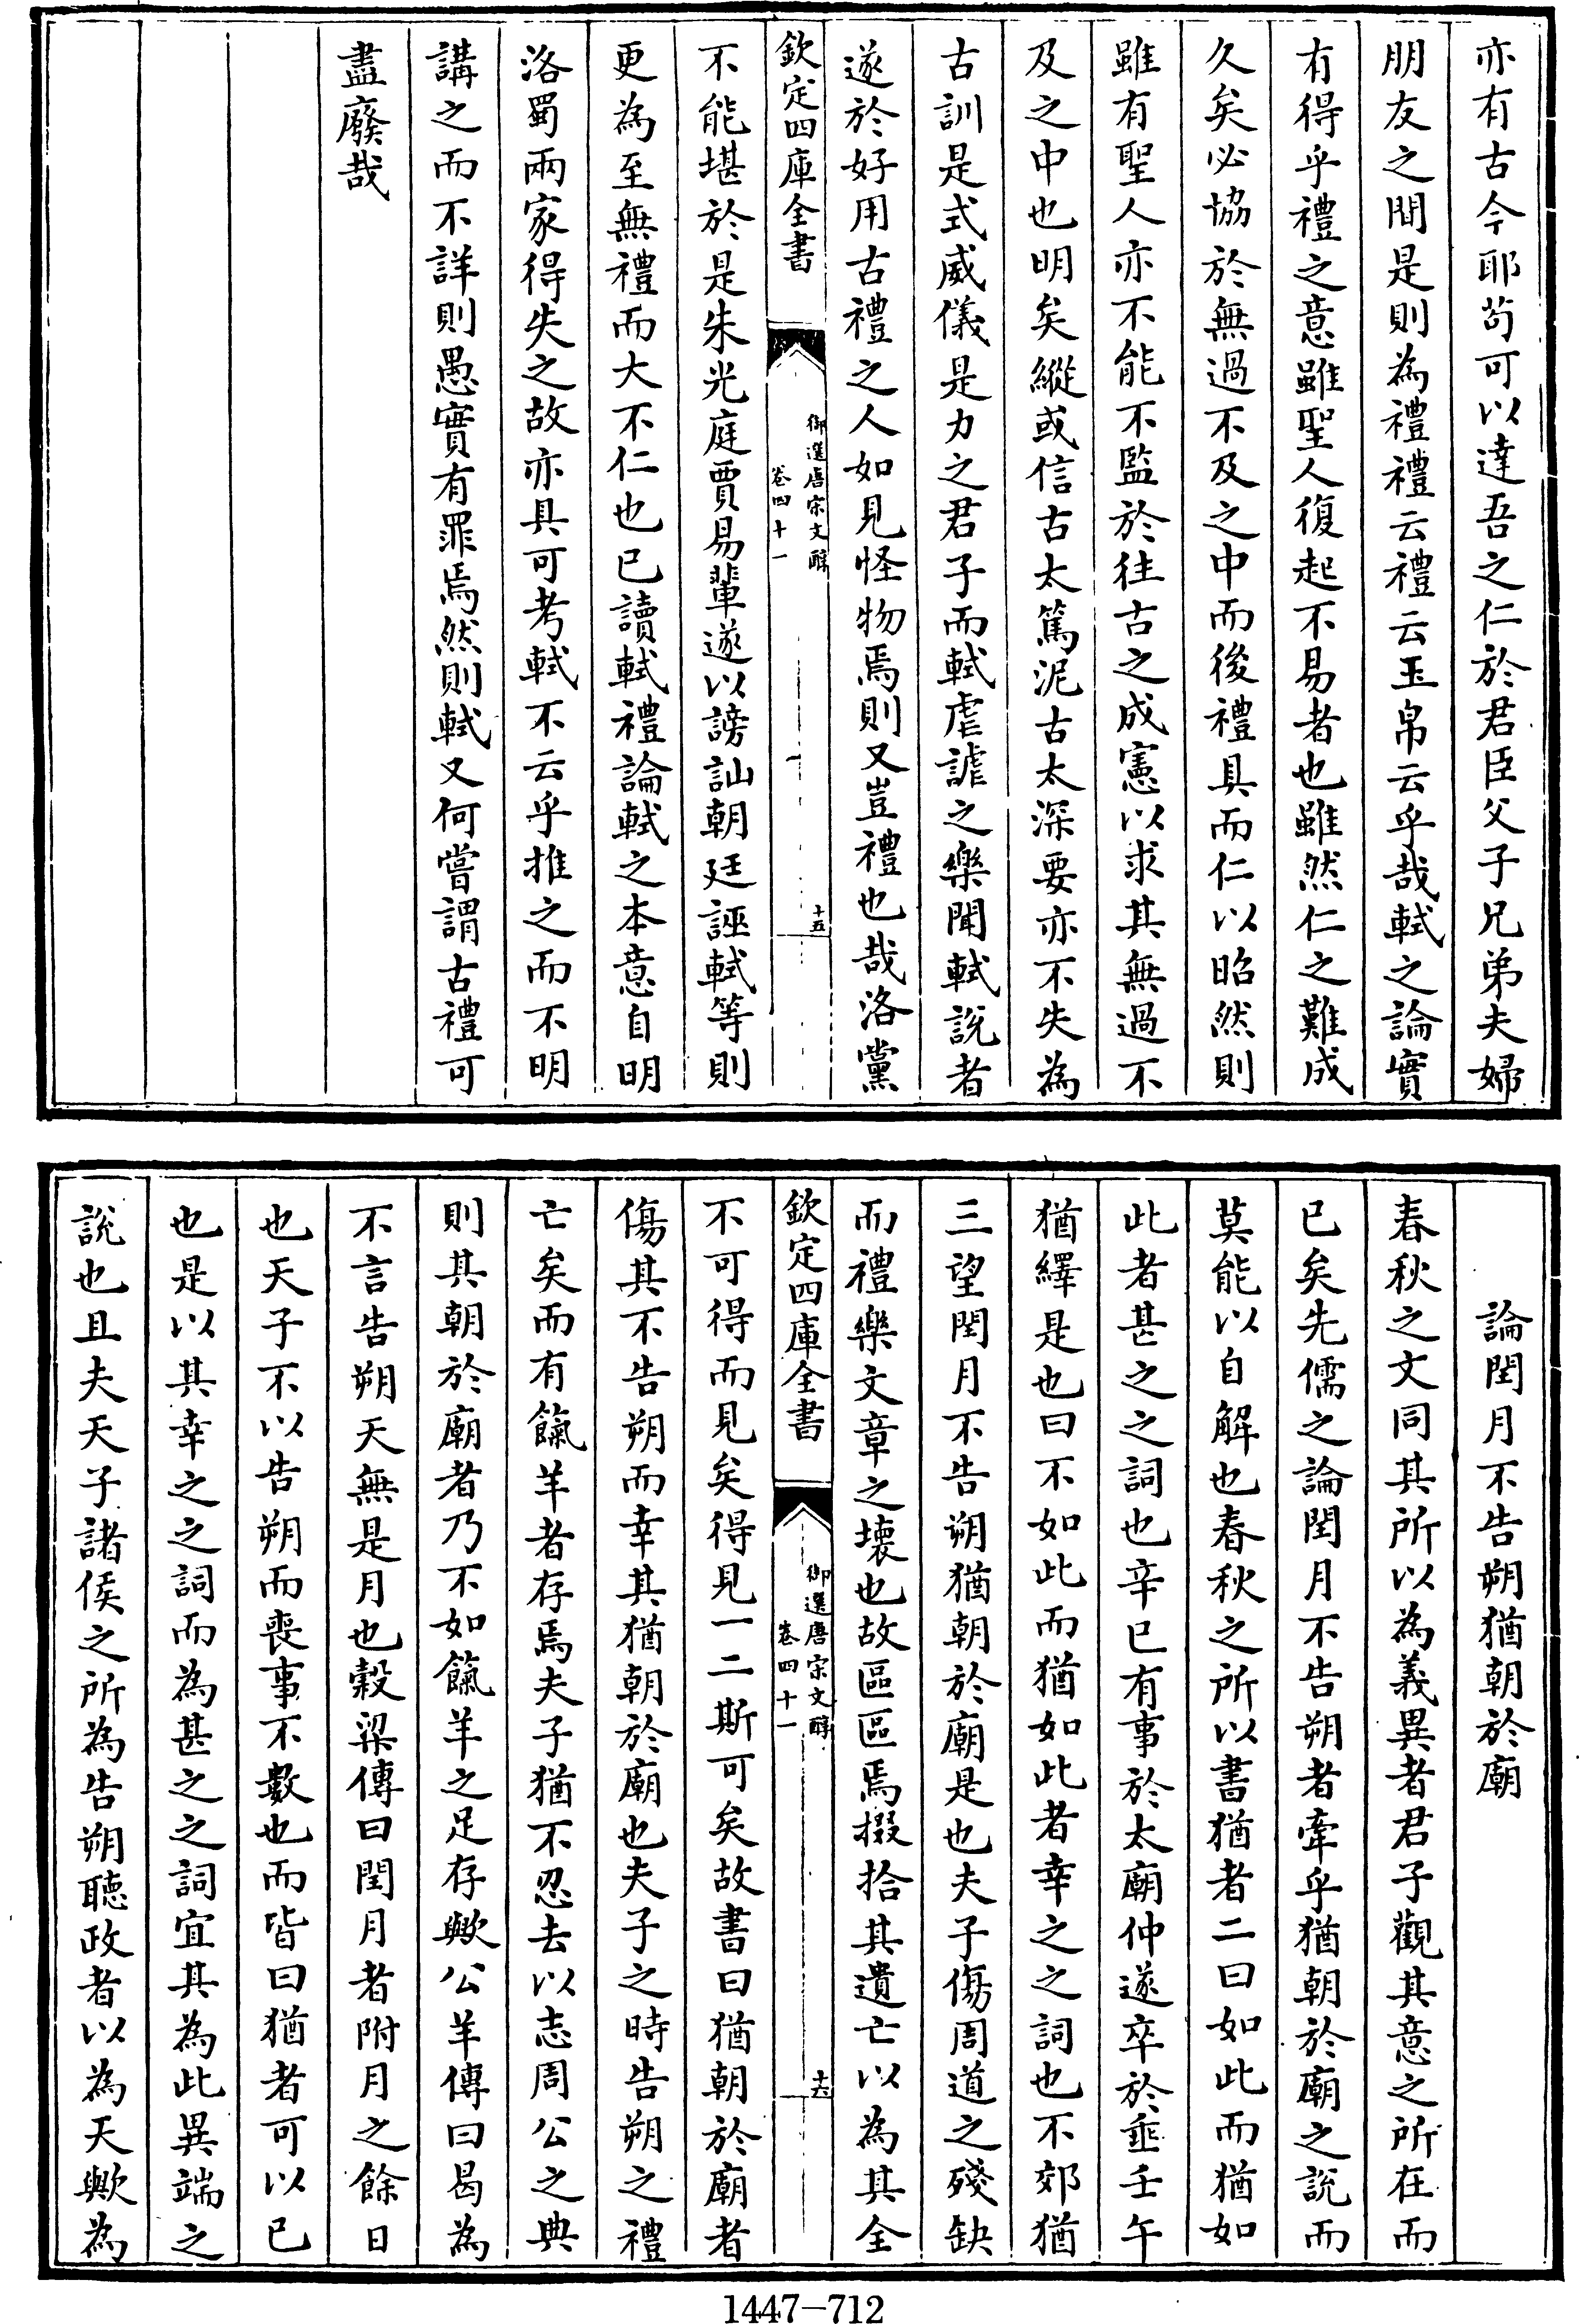 亦有古今耶苟可以達吾之仁於君臣父子兄弟夫婦
朋友之間是則為禮禮云禮云玉帛云乎哉軾之論實
有得乎禮之意雖聖人復起不易者也雖然仁之難成
久矣必協於無過不及之中而後禮具而仁以昭然則
雖有聖人亦不能不監於往古之成憲以求其無過不
及之中也明矣縱或信古太篤泥古太深要亦不失為
古訓是式威儀是力之君子而軾虐謔之樂聞軾說者
遂於好用古禮之人如見怪物焉則又豈禮也哉洛黨
欽定四庫全書
御選唐宋文醇
卷四十一
十五
不能堪於是朱光庭賈易輩遂以謗訕朝廷誣軾等則
更為至無禮而大不仁也已讀軾禮論軾之本意自明
洛蜀兩家得失之故亦具可考軾不云乎推之而不明
講之而不詳則愚實有罪焉然則軾又何嘗謂古禮可
盡廢哉
論閏月不告朔猶朝於廟
春秋之文同其所以為義異者君子觀其意之所在而
已矣先儒之論閏月不告朔者牽乎猶朝於廟之說而
莫能以自解也春秋之所以書猶者二曰如此而猶如
此者甚之之詞也辛巳有事於太廟仲遂卒於垂壬午
猶繹是也曰不如此而猶如此者幸之之詞也不郊猶
三望閏月不告朔猶朝於廟是也夫子傷周道之殘缺
而禮樂文章之壞也故區區焉掇拾其遺亡以為其全
欽定四庫全書
御選唐宋文醇
卷四十一
十六
不可得而見矣得見一二斯可矣故書曰猶朝於廟者
傷其不告朔而幸其猶朝於廟也夫子之時告朔之禮
亡矣而有餼羊者存焉夫子猶不忍去以志周公之典
則其朝於廟者乃不如餼羊之足存歟公羊傳曰曷為
不言告朔天無是月也穀梁傳曰閏月者附月之餘日
也天子不以告朔而喪事不數也而皆曰猶者可以已
也是以其幸之之詞而為甚之之詞宜其為此異端之
說也且夫天子諸侯之所為告朔聽政者以為天歟為
1447-712